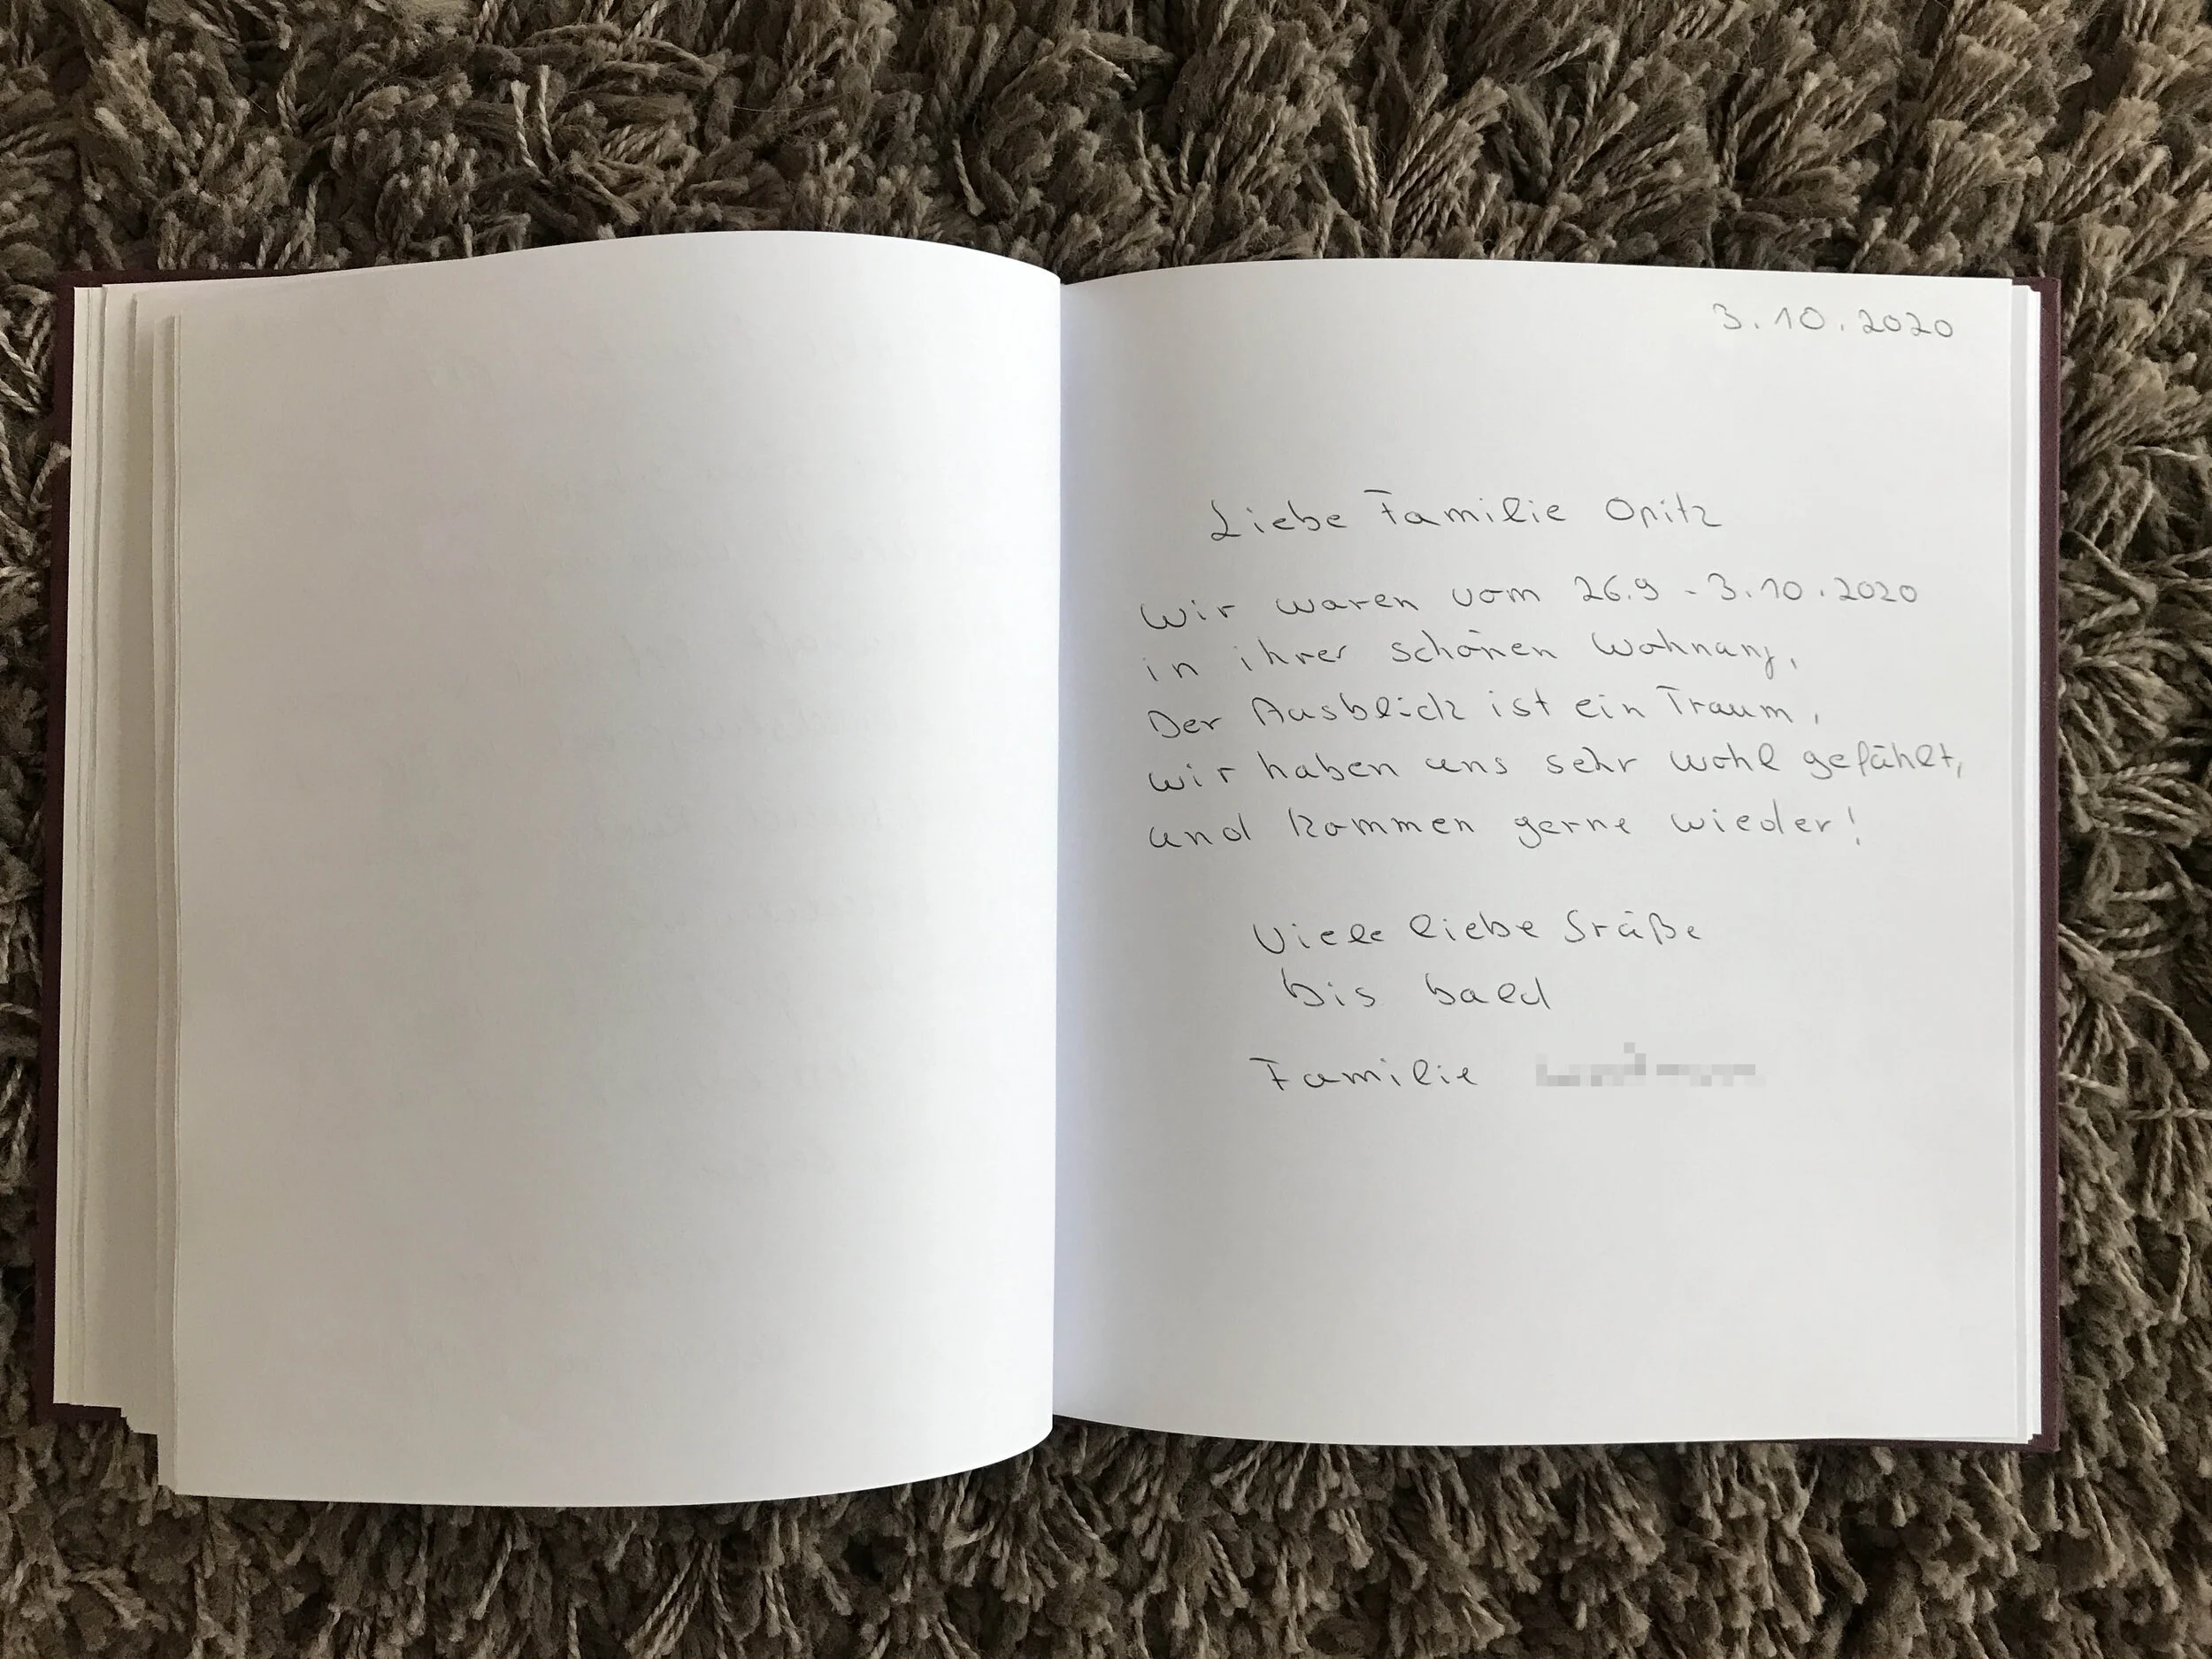 3.10.2020
Liebe Familie Opitz
Wir waren vom 26.9 - 3.10.2020
in ihrer schönen Wohnung,
Der Ausblick ist ein Traum,
wir haben uns sehr wohl gefühlt,
und kommen gerne wieder!
Viele liebe Grüße
bis bald
Familie